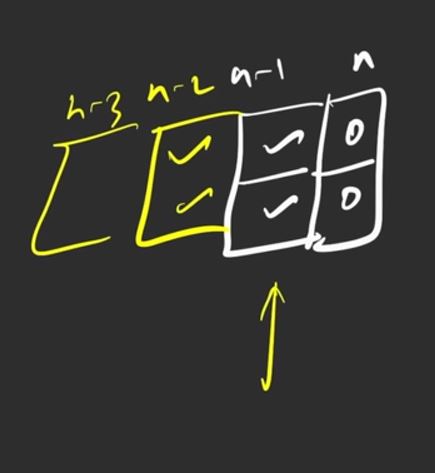 n-3 n-2 n-1 n
✓ ✓ 0
✓ ✓ 0